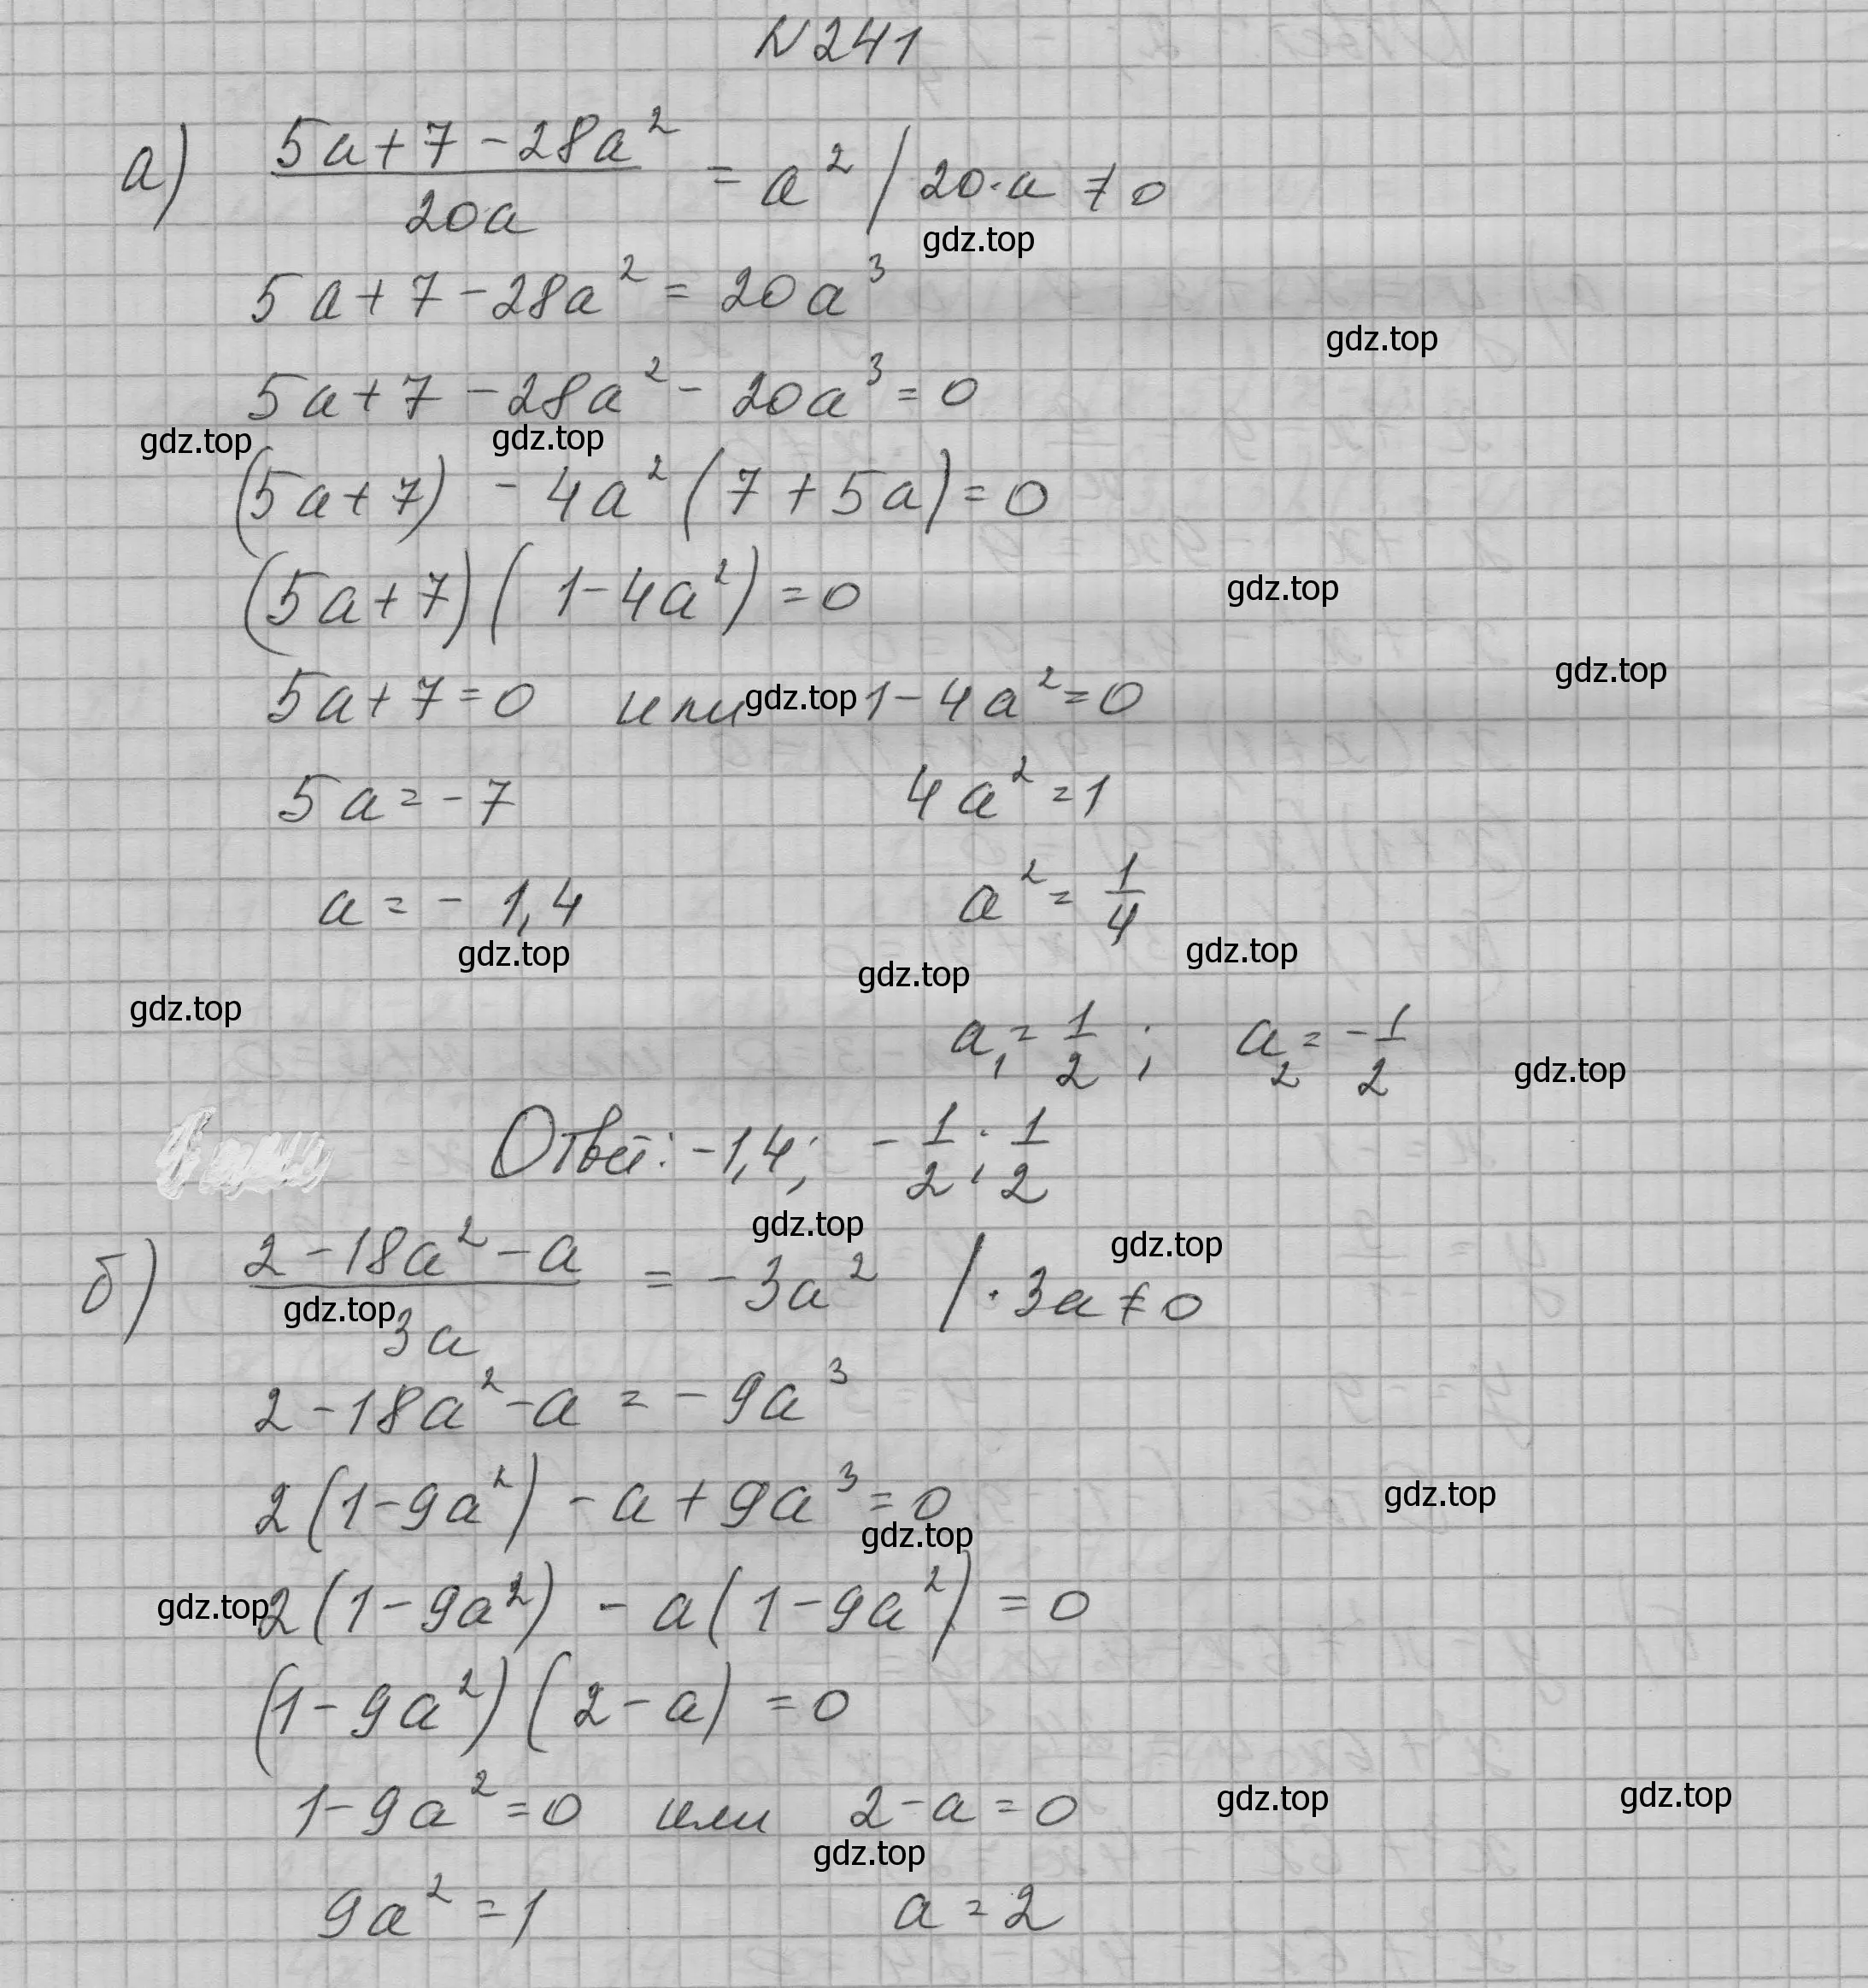 N 241
а) (5a + 7 - 28a²)/(20a) = a² / 20·a ≠ 0
gdz.top
5a + 7 - 28a² = 20a³
gdz.top
5a + 7 - 28a² - 20a³ = 0
gdz.top gdz.top
(5a + 7) - 4a² (7 + 5a) = 0
(5a + 7)(1 - 4a²) = 0
gdz.top
gdz.top
5a + 7 = 0 или gdz.top 1 - 4a² = 0
5a = -7 4a² = 1
a = - 1,4 a² = 1/4
gdz.top gdz.top gdz.top
gdz.top
a₁ = 1/2 ; a₂ = -1/2
gdz.top
Ответ: -1,4; -1/2; 1/2
gdz.top gdz.top
б) (2 - 18a² - a)/(3a) = -3a² / · 3a ≠ 0
gdz.top
2 - 18a² - a = -9a³
2(1 - 9a²) - a + 9a³ = 0
gdz.top
gdz.top
gdz.top 2(1 - 9a²) - a(1 - 9a²) = 0
(1 - 9a²)(2 - a) = 0
1 - 9a² = 0 или 2 - a = 0
gdz.top gdz.top
gdz.top
9a² = 1 a = 2